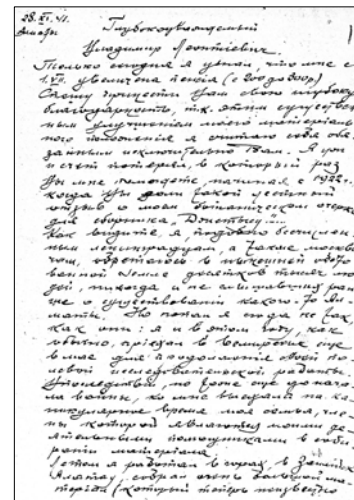 28.XI.41.
Алма-Ата
Глубокоуважаемый
Владимир Леонтьевич.
Только сегодня я узнал, что мне с
1.VII. увеличена пенсия (с 200 до 300 р)
Спешу принести Вам свою глубокую
благодарность, т.к. этим существен-
ным улучшением моего материаль-
ного положения я считаю себя обя-
занным исключительно Вам. Я уж
и счет потерял, в который раз
Вы мне помогаете, начиная с 1922 г.
когда Вы дали такой лестный
отзыв о моем ботаническом очерке
для сборника
Как видите, я, подобно бесчислен-
ным ленинградцам, а также москви-
чам, обретаюсь в нынешней обето-
ванной земле десятков тысяч лю-
дей, никогда и не слышавших рань-
ше о существовании какого-то Ал-
маты. Но попал я сюда не так,
как они: я и в этом году, как
обычно, приехал в Семиречье еще
в мае для продолжения своей по-
левой исследовательской работы.
Впоследствии, но еще до нача-
ла войны, ко мне выехала на ка-
никулярное время моя семья, чле-
ны которой являются моими де-
ятельными помощниками в соби-
рании материала
Летом я работал в горах, в Заилийском
Алатау, собрал очень большой ма-
териал (который теперь